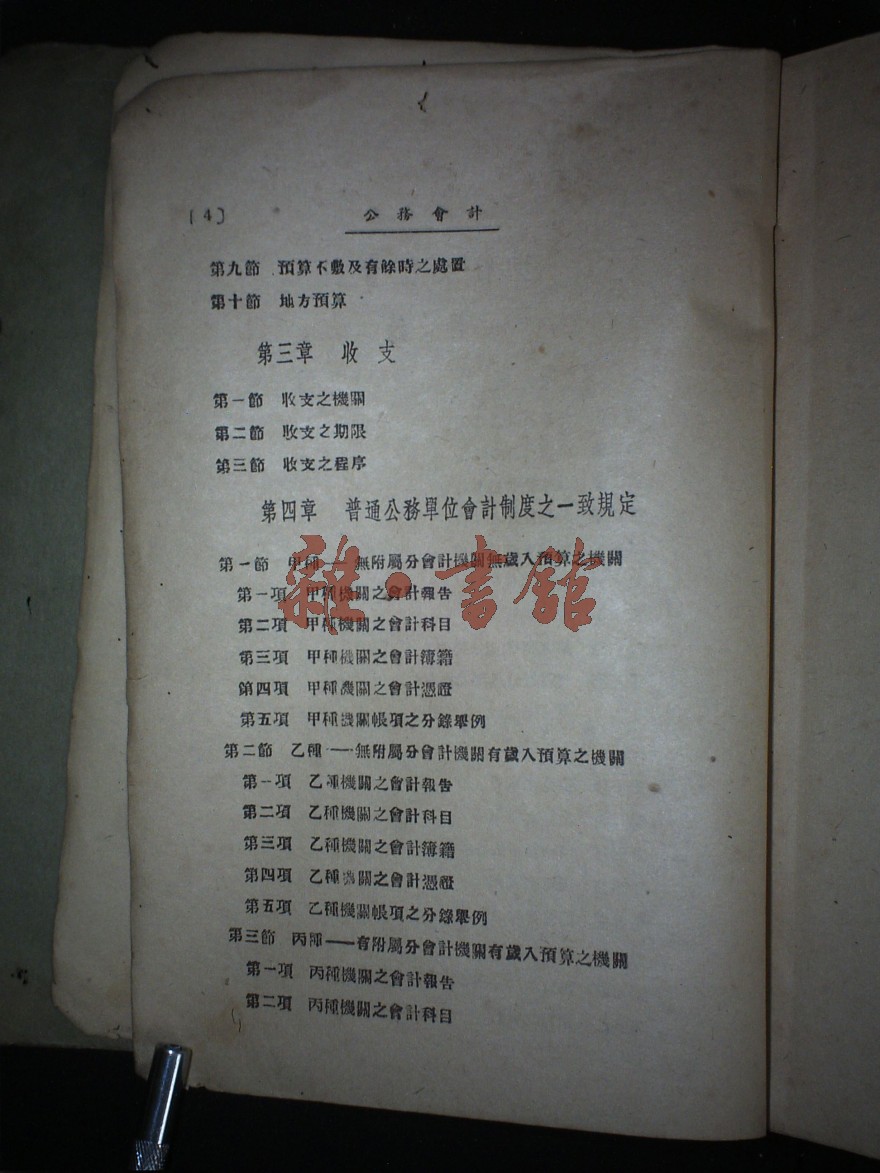 [4] 公務會計
第九節 預算不敷及有餘時之處置
第十節 地方預算
第三章 收支
第一節 收支之機關
第二節 收支之期限
第三節 收支之程序
第四章 普通公務單位會計制度之一致規定
第一節 甲種——無附屬分會計機關無歲入預算之機關
雜·書館
第一項 甲種機關之會計報告
第二項 甲種機關之會計科目
第三項 甲種機關之會計簿籍
第四項 甲種機關之會計憑證
第五項 甲種機關帳項之分錄舉例
第二節 乙種——無附屬分會計機關有歲入預算之機關
第一項 乙種機關之會計報告
第二項 乙種機關之會計科目
第三項 乙種機關之會計簿籍
第四項 乙種機關之會計憑證
第五項 乙種機關帳項之分錄舉例
第三節 丙種——有附屬分會計機關有歲入預算之機關
第一項 丙種機關之會計報告
第二項 丙種機關之會計科目